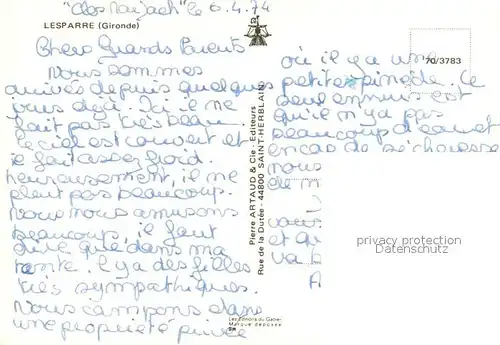 "Clos Marjach" le 6.4.74
LESPARRE (Gironde)
Chers Grands Parents
Nous sommes
arrivés depuis quelques
jours déjà. Ici il ne
fait pas très beau
le ciel est couvert et
il fait assez froid.
heureusement, il ne
pleut pas beaucoup.
Nous nous amusons
beaucoup. il faut
dire que dans ma
tente. il y a des filles
très sympathiques.
Nous campons dans
une propriété privée
Pierre ARTAUD & Cie - Editeurs
Rue de la Durée - 44800 SAINT-HERBLAIN
Les Editions du Gabier
Marque déposée
70/3783
où il y a une
petite pinède. Le
seul ennuis est
qu'il n'y a pas
beaucoup d'eau et
en cas de sécheresse
nous
de m
vous
et qu
va b
A
privacy protection
Datenschutz